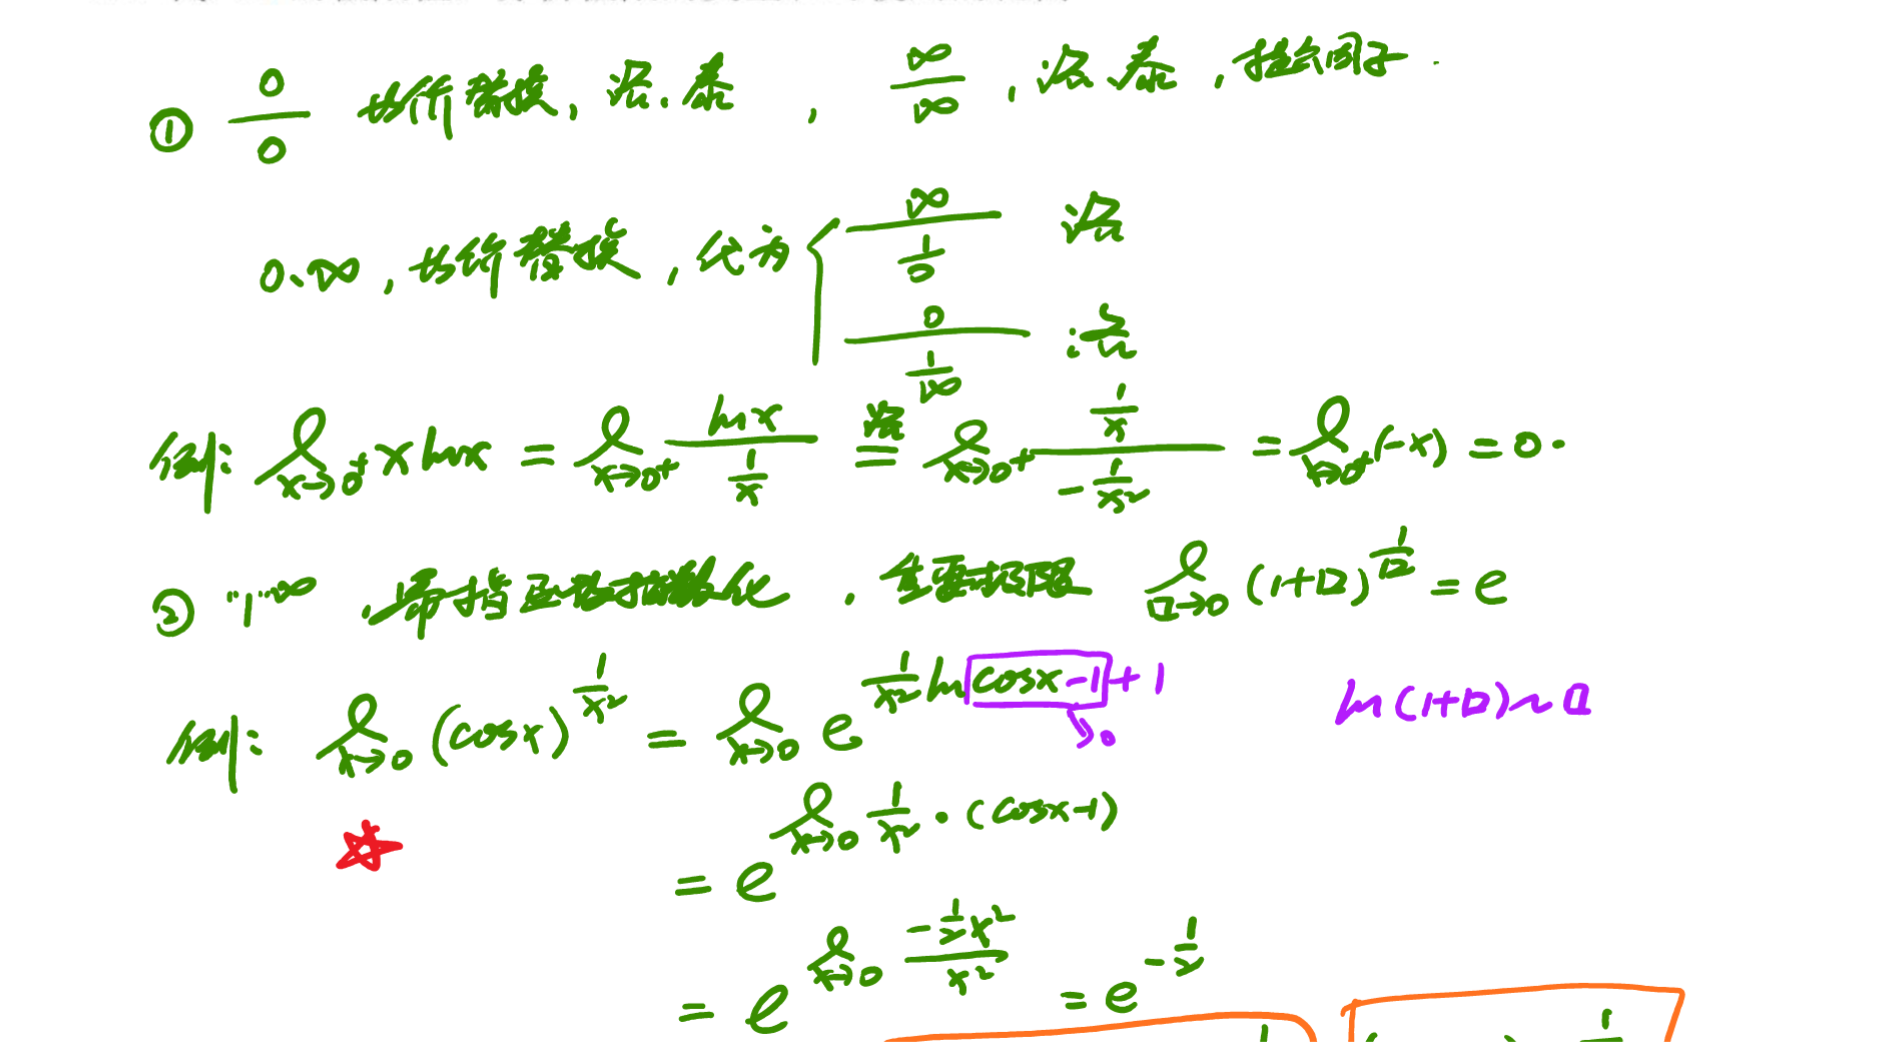 ① 0/0 等价替换, 洛、泰, ∞/∞, 洛、泰, 提公因子.
0·∞, 等价替换, 化为 { ∞/(1/0) 洛
0/(1/∞) 洛
例: lim_{x→0⁺} x ln x = lim_{x→0⁺} ln x/(1/x) 洛= lim_{x→0⁺} (1/x)/(-1/x²) = lim_{x→0⁺} (-x) = 0.
② "1"^∞, 幂指函数指数化, 重要极限 lim_{□→0} (1+□)^{1/□} = e
例: lim_{x→0} (cosx)^{1/x²} = lim_{x→0} e^{1/x² ln cosx -1 +1} →0 ln(1+□)~□
= e^{lim_{x→0} 1/x² · (cosx-1)}
= e^{lim_{x→0} (-1/2 x²)/x²} = e^{-1/2}